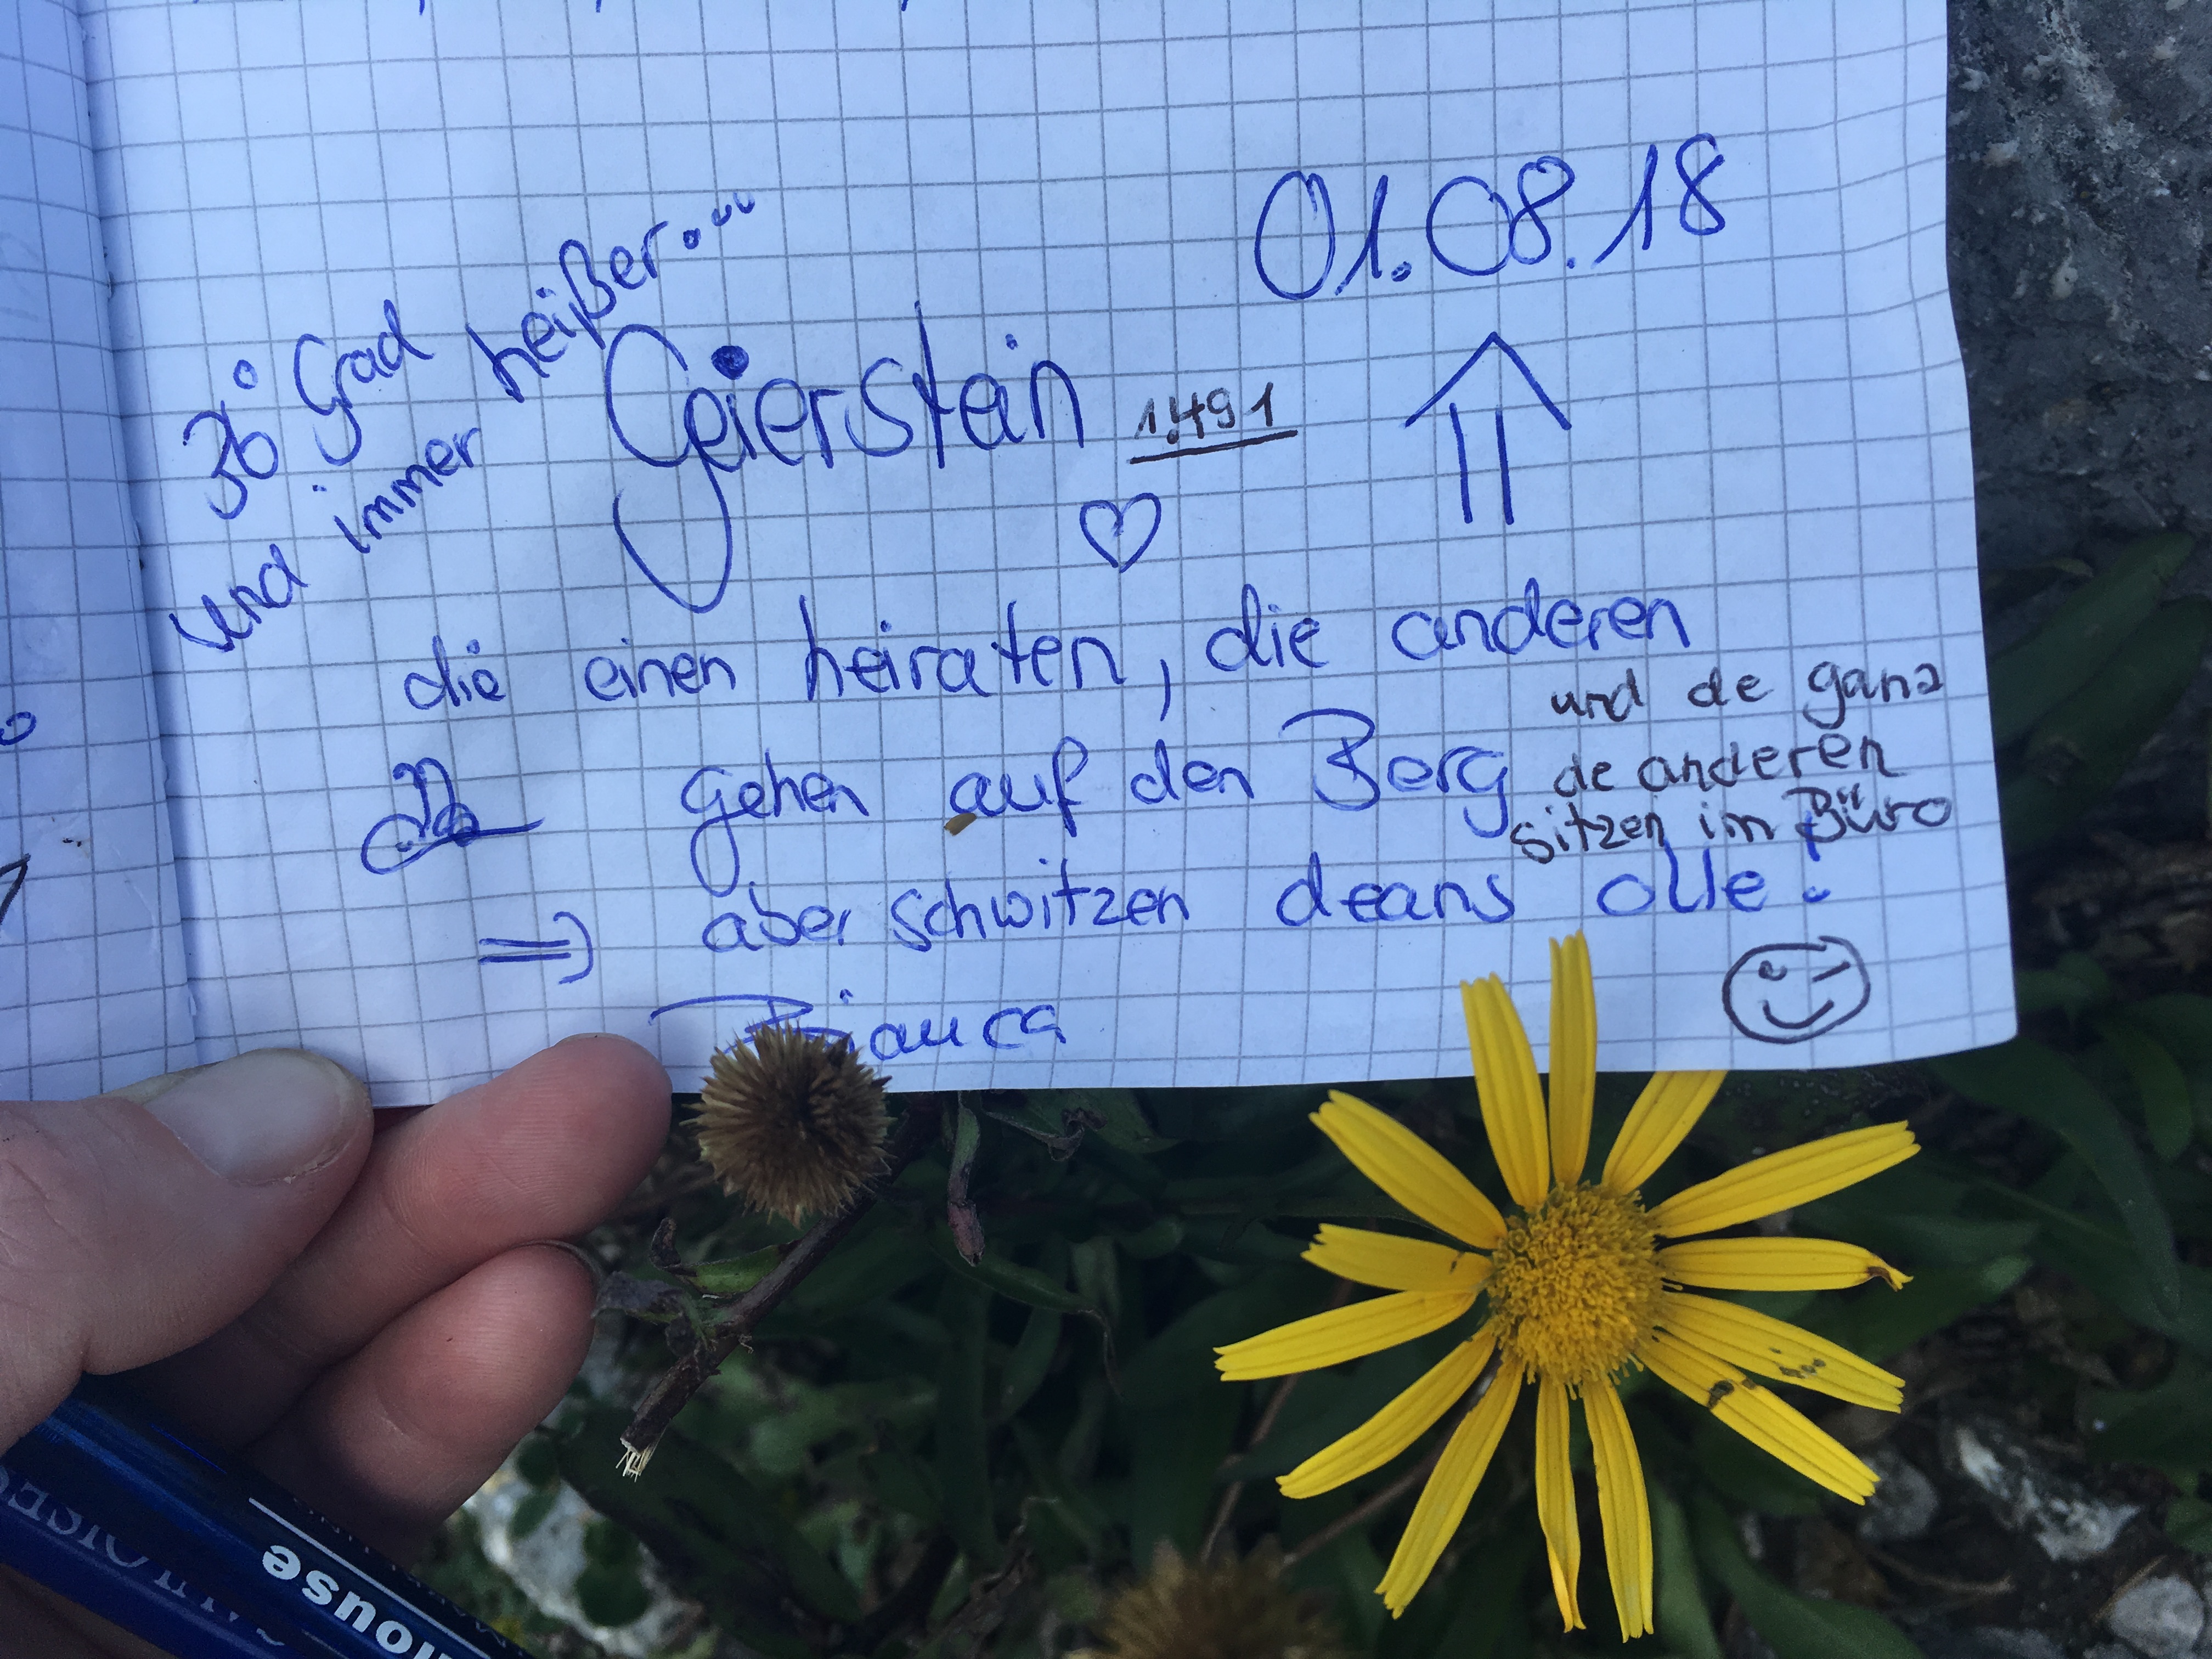 01.08.18
Grad
und immer heißer...
Geierstein 1.491
die einen heiraten, die anderen
gehen auf den Berg
und de ganz
de anderen
sitzen im Büro
⇒ aber schwitzen deans olle!
Bianca